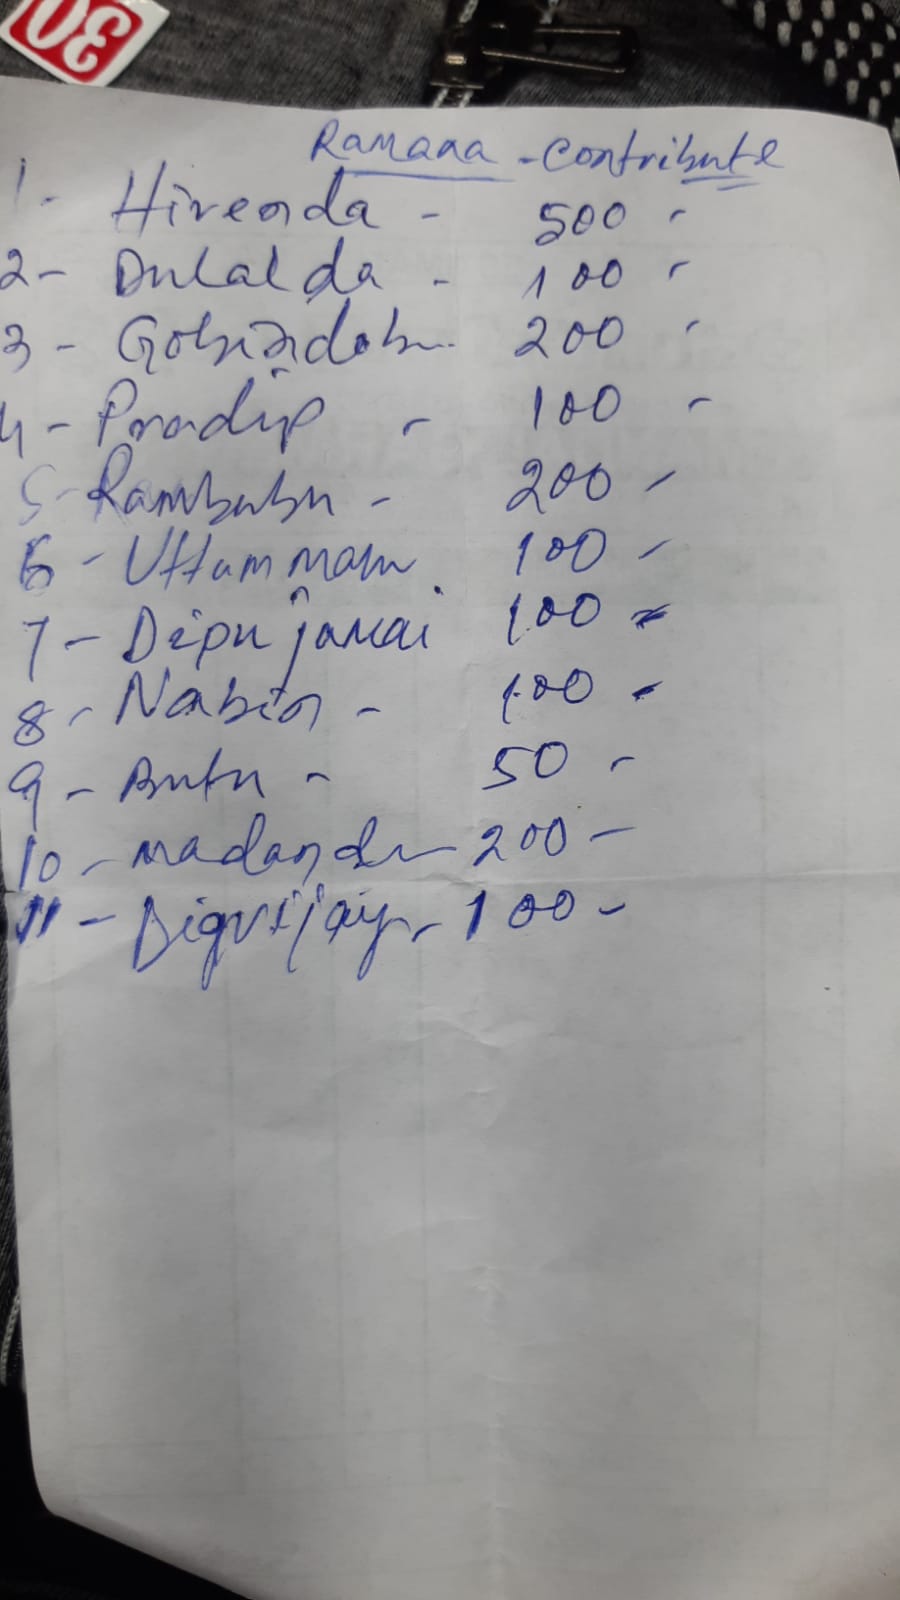 30
Ramana - Contribute
1 - Hirenda - 500 -
2 - Dulal da - 100 -
3 - Gobindobabu - 200 -
4 - Pradip - 100 -
5 - Rambabu - 200 -
6 - Uttam mam 100 -
7 - Dipu jamai 100 -
8 - Nabin - 100 -
9 - Butu - 50 -
10 - madanda - 200 -
11 - Digvijay - 100 -